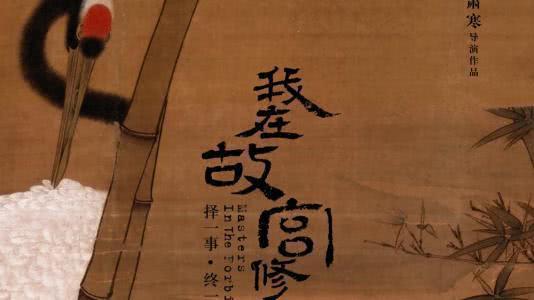 寒 导演作品
我在故宫修
Masters
In The Forbi
择一事·终一